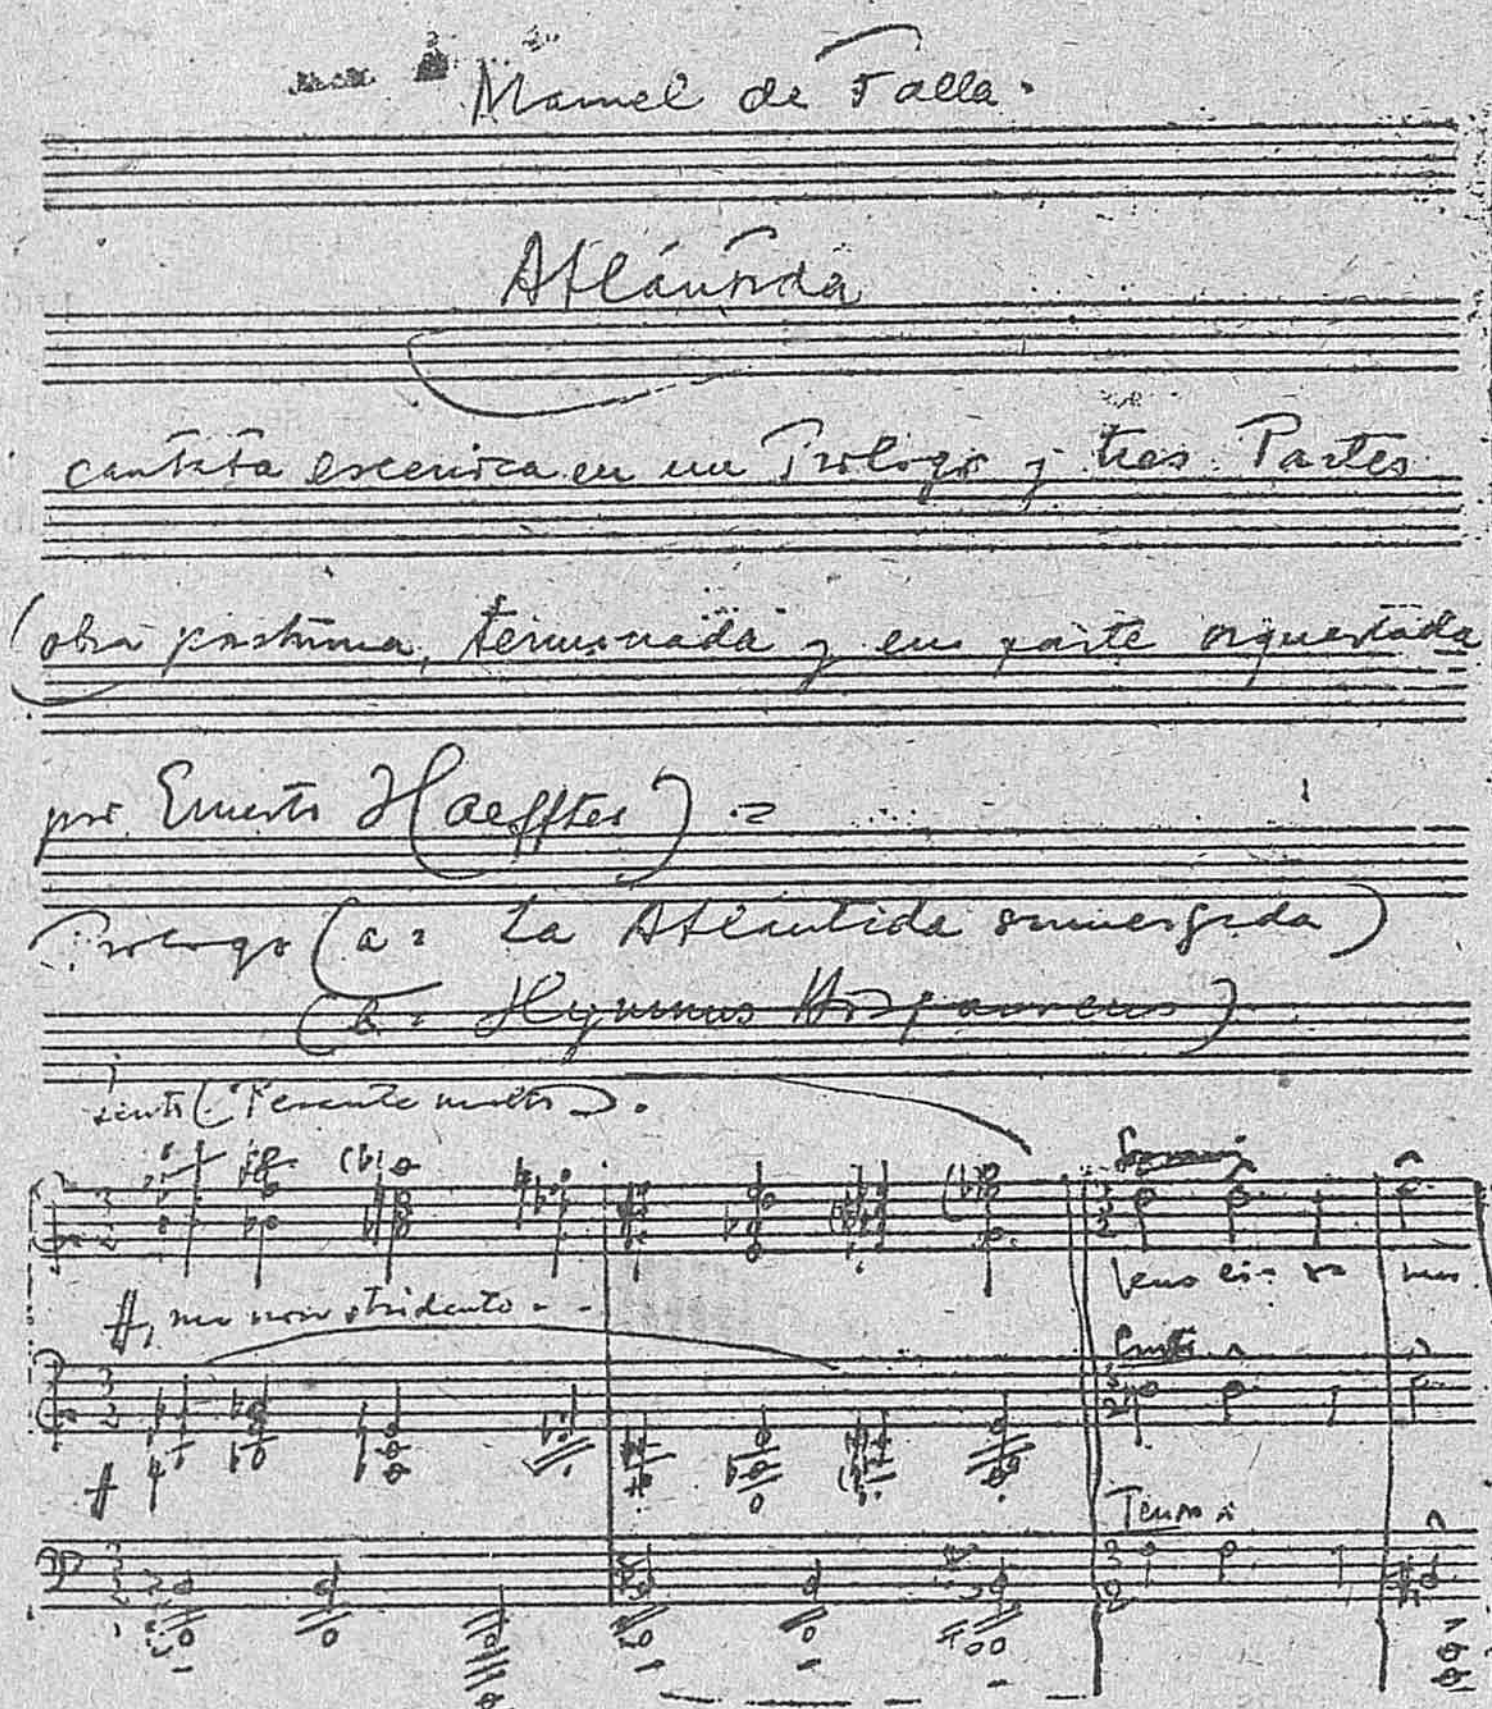 Manuel de Falla.
Atlántida
cantata escenica en un Prologo y tres Partes
(obra postuma, terminada y en parte orquestada
por Ernesto Haeffter)
Prologo (a: La Atlantida sumergida)
(b: Hymnus Hispanicus)
Lento (Pesante molto).
ff, ma non stridente - -
Soprani
Veus ei- xa mun
ff
Tenori
3
2